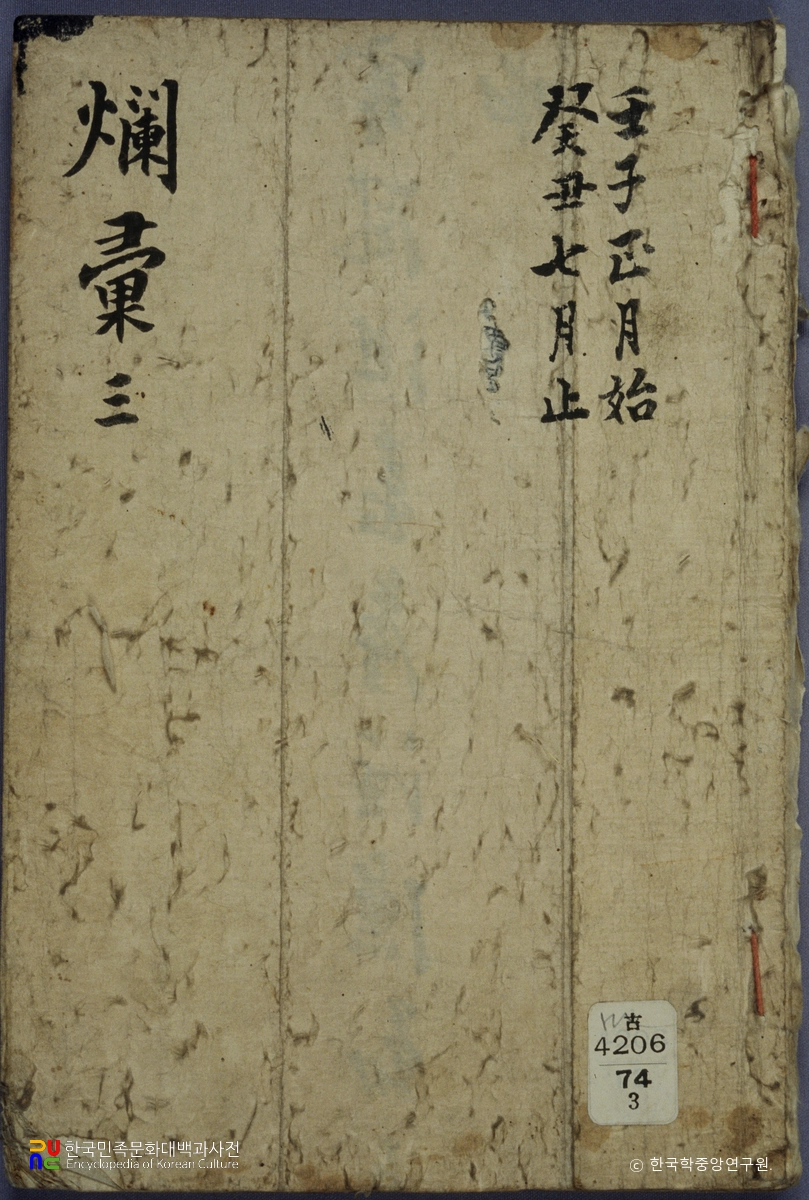 壬子正月始
癸丑七月止
爛彙 三
古
4206
74
3
한국민족문화대백과사전
Encyclopedia of Korean Culture
© 한국학중앙연구원.